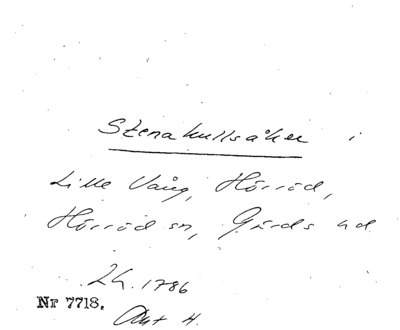 Stenakullsåker i
Lille Vång, Hörröd,
Hörröd sn, Gärds hd
LH. 1786
Nr 7718. Akt H.